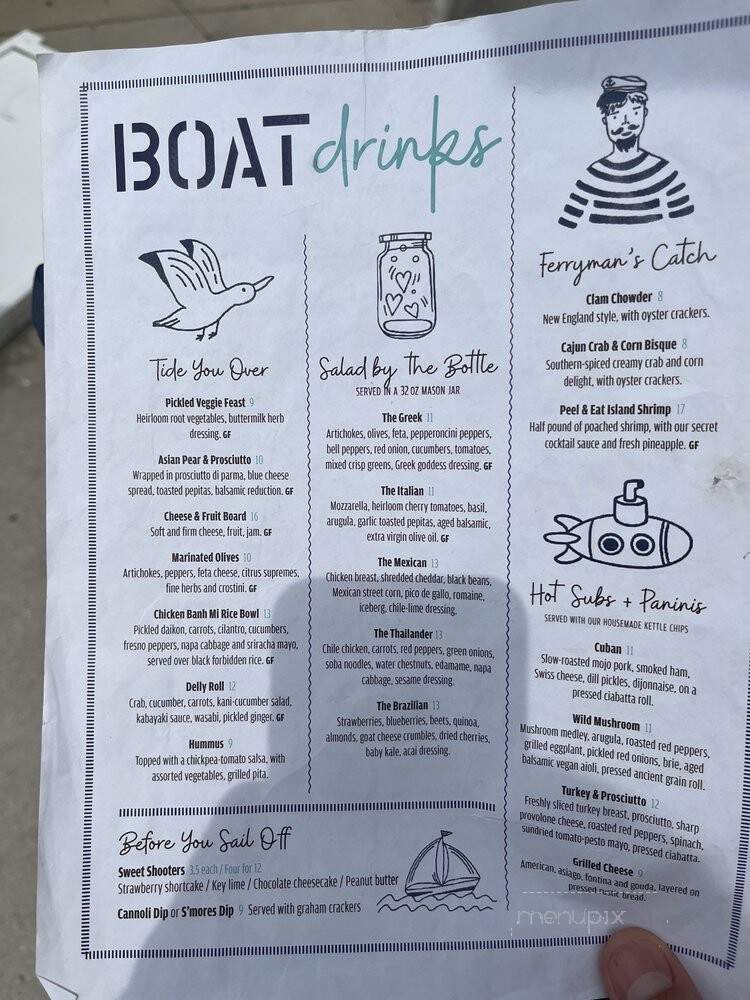 BOAT drinks
Tide You Over
Pickled Veggie Feast 9
Heirloom root vegetables, buttermilk herb
dressing. GF
Asian Pear & Prosciutto 10
Wrapped in prosciutto di parma, blue cheese
spread, toasted pepitas, balsamic reduction. GF
Cheese & Fruit Board 16
Soft and firm cheese, fruit, jam. GF
Marinated Olives 10
Artichokes, peppers, feta cheese, citrus supremes,
fine herbs and crostini. GF
Chicken Banh Mi Rice Bowl 13
Pickled daikon, carrots, cilantro, cucumbers,
fresno peppers, napa cabbage and sriracha mayo,
served over black forbidden rice. GF
Delly Roll 12
Crab, cucumber, carrots, kani-cucumber salad,
kabayaki sauce, wasabi, pickled ginger. GF
Hummus 9
Topped with a chickpea-tomato salsa, with
assorted vegetables, grilled pita.
Salad by the Bottle
SERVED IN A 32 OZ MASON JAR
The Greek 11
Artichokes, olives, feta, pepperoncini peppers,
bell peppers, red onion, cucumbers, tomatoes,
mixed crisp greens, Greek goddess dressing. GF
The Italian 11
Mozzarella, heirloom cherry tomatoes, basil,
arugula, garlic toasted pepitas, aged balsamic,
extra virgin olive oil. GF
The Mexican 13
Chicken breast, shredded cheddar, black beans,
Mexican street corn, pico de gallo, romaine,
iceberg, chile-lime dressing.
The Thailander 13
Chile chicken, carrots, red peppers, green onions,
soba noodles, water chestnuts, edamame, napa
cabbage, sesame dressing.
The Brazilian 13
Strawberries, blueberries, beets, quinoa,
almonds, goat cheese crumbles, dried cherries,
baby kale, acai dressing.
Before You Sail Off
Sweet Shooters 3.5 each / Four for 12
Strawberry shortcake / Key lime / Chocolate cheesecake / Peanut butter
Cannoli Dip or S'mores Dip 9 Served with graham crackers
Ferryman's Catch
Clam Chowder 8
New England style, with oyster crackers.
Cajun Crab & Corn Bisque 8
Southern-spiced creamy crab and corn
delight, with oyster crackers.
Peel & Eat Island Shrimp 17
Half pound of poached shrimp, with our secret
cocktail sauce and fresh pineapple. GF
Hot Subs + Paninis
SERVED WITH OUR HOUSEMADE KETTLE CHIPS
Cuban 11
Slow-roasted mojo pork, smoked ham,
Swiss cheese, dill pickles, dijonnaise, on a
pressed ciabatta roll.
Wild Mushroom 11
Mushroom medley, arugula, roasted red peppers,
grilled eggplant, pickled red onions, brie, aged
balsamic vegan aioli, pressed ancient grain roll.
Turkey & Prosciutto 12
Freshly sliced turkey breast, prosciutto, sharp
provolone cheese, roasted red peppers, spinach,
sundried tomato-pesto mayo, pressed ciabatta.
Grilled Cheese 9
American, asiago, fontina and gouda, layered on
pressed rustic bread.
menupix